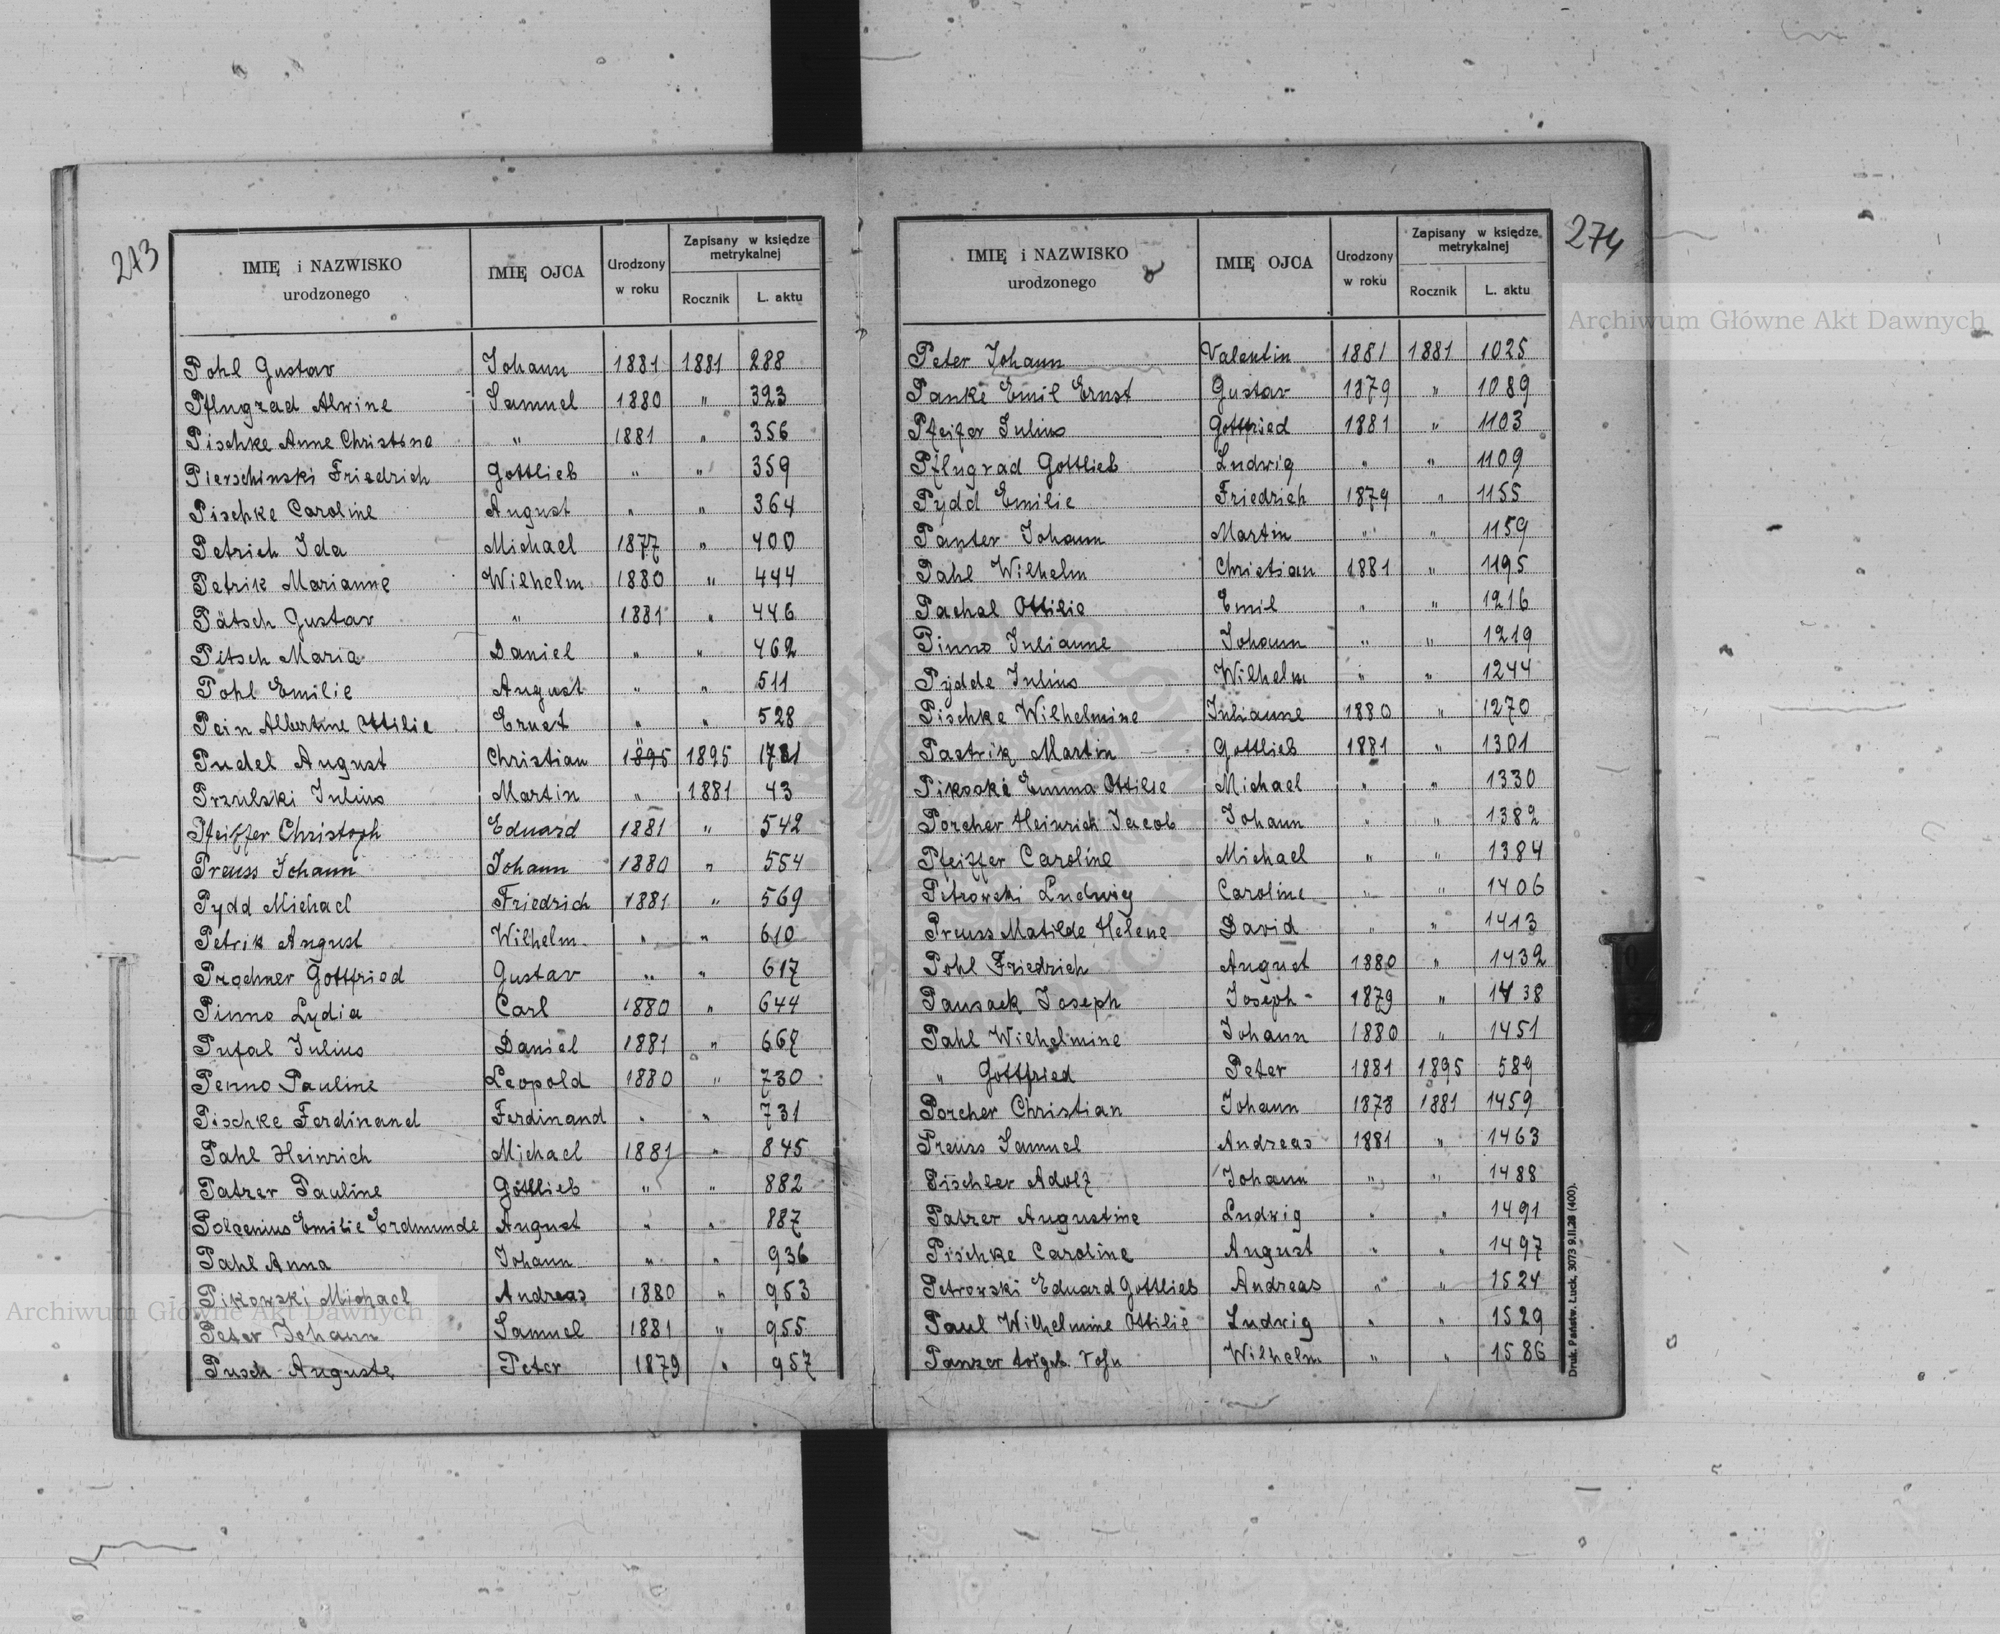 273
IMIĘ i NAZWISKO urodzonego | IMIĘ OJCA | Urodzony w roku | Zapisany w księdze metrykalnej
Rocznik | L. aktu
Pohl Gustav | Johann | 1881 | 1881 | 288
Pflugrad Alwine | Samuel | 1880 | " | 323
Pischke Anne Christine | " | 1881 | " | 356
Pierschinski Friedrich | Gottlieb | " | " | 359
Pischke Caroline | August | " | " | 364
Petrich Ida | Michael | 1877 | " | 400
Petrik Marianne | Wilhelm | 1880 | " | 444
Pätsch Gustav | " | 1881 | " | 446
Pitsch Maria | Daniel | " | " | 462
Pohl Emilie | August | " | " | 511
Pein Albertine Ottilie | Ernst | " | " | 528
Pudel August | Christian | 1895 | 1895 | 1781
Przulski Julius | Martin | " | 1881 | 43
Pfeiffer Christoph | Eduard | 1881 | " | 542
Preuss Johann | Johann | 1880 | " | 554
Pydd Michael | Friedrich | 1881 | " | 569
Petrik August | Wilhelm | " | " | 610
Prochner Gottfried | Gustav | " | " | 617
Pinno Lydia | Carl | 1880 | " | 644
Pufal Julius | Daniel | 1881 | " | 668
Penno Pauline | Leopold | 1880 | " | 730
Pischke Ferdinand | Ferdinand | " | " | 731
Pahl Heinrich | Michael | 1881 | " | 845
Patzer Pauline | Gottlieb | " | " | 882
Polcenius Emilie Erdmunde | August | " | " | 887
Pahl Anna | Johann | " | " | 936
Pikowski Michael | Andreas | 1880 | " | 953
Peter Johann | Samuel | 1881 | " | 955
Pusch Auguste | Peter | 1879 | " | 957
274
IMIĘ i NAZWISKO urodzonego | IMIĘ OJCA | Urodzony w roku | Zapisany w księdze metrykalnej
Rocznik | L. aktu
Peter Johann | Valentin | 1881 | 1881 | 1025
Panke Emil Ernst | Gustav | 1879 | " | 1089
Pfeifer Julius | Gottfried | 1881 | " | 1103
Pflugrad Gottlieb | Ludwig | " | " | 1109
Pydd Emilie | Friedrich | 1879 | " | 1155
Panter Johann | Martin | " | " | 1159
Pahl Wilhelm | Christian | 1881 | " | 1195
Pachal Ottilie | Emil | " | " | 1216
Pinno Julianne | Johann | " | " | 1219
Pydde Julius | Wilhelm | " | " | 1244
Pischke Wilhelmine | Julianne | 1880 | " | 1270
Pastrik Martin | Gottlieb | 1881 | " | 1301
Pikoski Emma Ottilie | Michael | " | " | 1330
Porcher Heinrich Jacob | Johann | " | " | 1382
Pfeiffer Caroline | Michael | " | " | 1384
Petrowski Ludwig | Caroline | " | " | 1406
Preuss Matilde Helene | David | " | " | 1413
Pohl Friedrich | August | 1880 | " | 1432
Pansack Joseph | Joseph | 1879 | " | 1438
Pahl Wilhelmine | Johann | 1880 | " | 1451
" Gottfried | Peter | 1881 | 1895 | 589
Porcher Christian | Johann | 1878 | 1881 | 1459
Preuss Samuel | Andreas | 1881 | " | 1463
Pischler Adolf | Johann | " | " | 1488
Patzer Augustine | Ludwig | " | " | 1491
Pischke Caroline | August | " | " | 1497
Petrowski Eduard Gottlieb | Andreas | " | " | 1524
Paul Wilhelmine Ottilie | Ludwig | " | " | 1529
Panzer | Wilhelm | " | " | 1586
Druk. Państw. Łuck, 3073 9.II.28 (400).
Archiwum Główne Akt Dawnych
Archiwum Główne Akt Dawnych